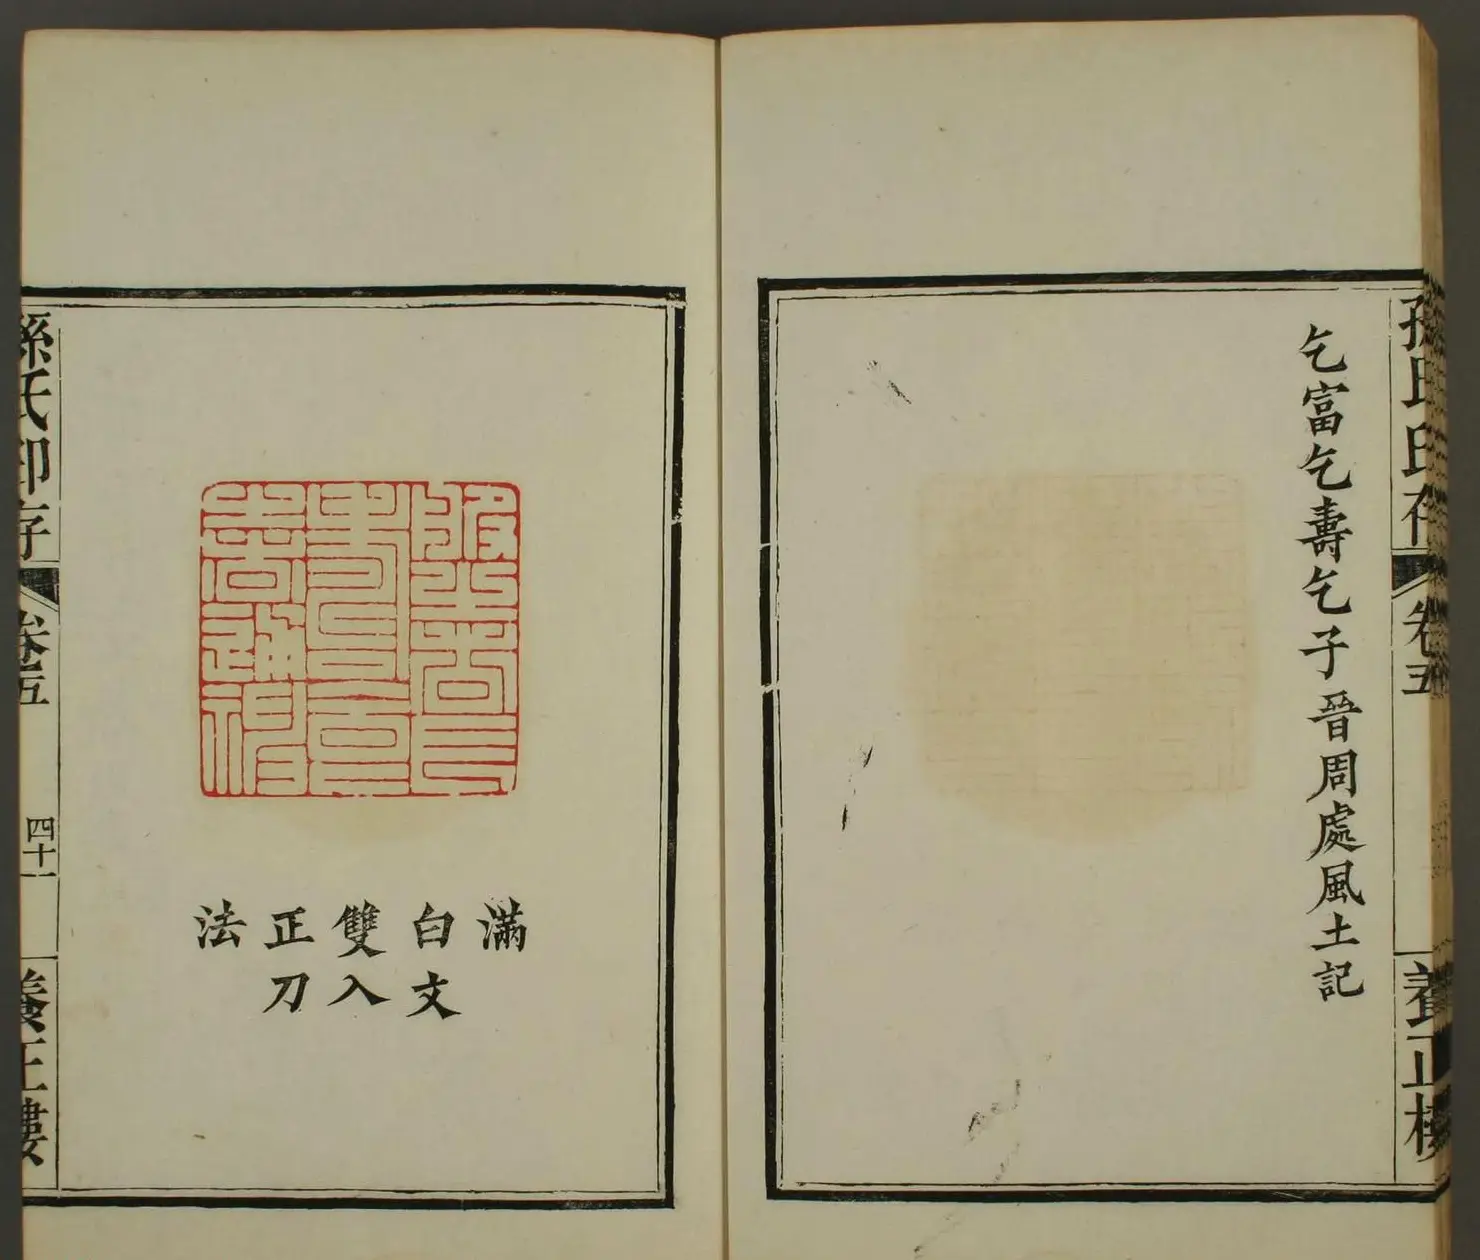 孫氏印存
卷五
養正樓
乞富乞壽乞子晉周處風土記
滿
白文
雙入
正刀
法
孫氏印存
卷五
四十一
養正樓